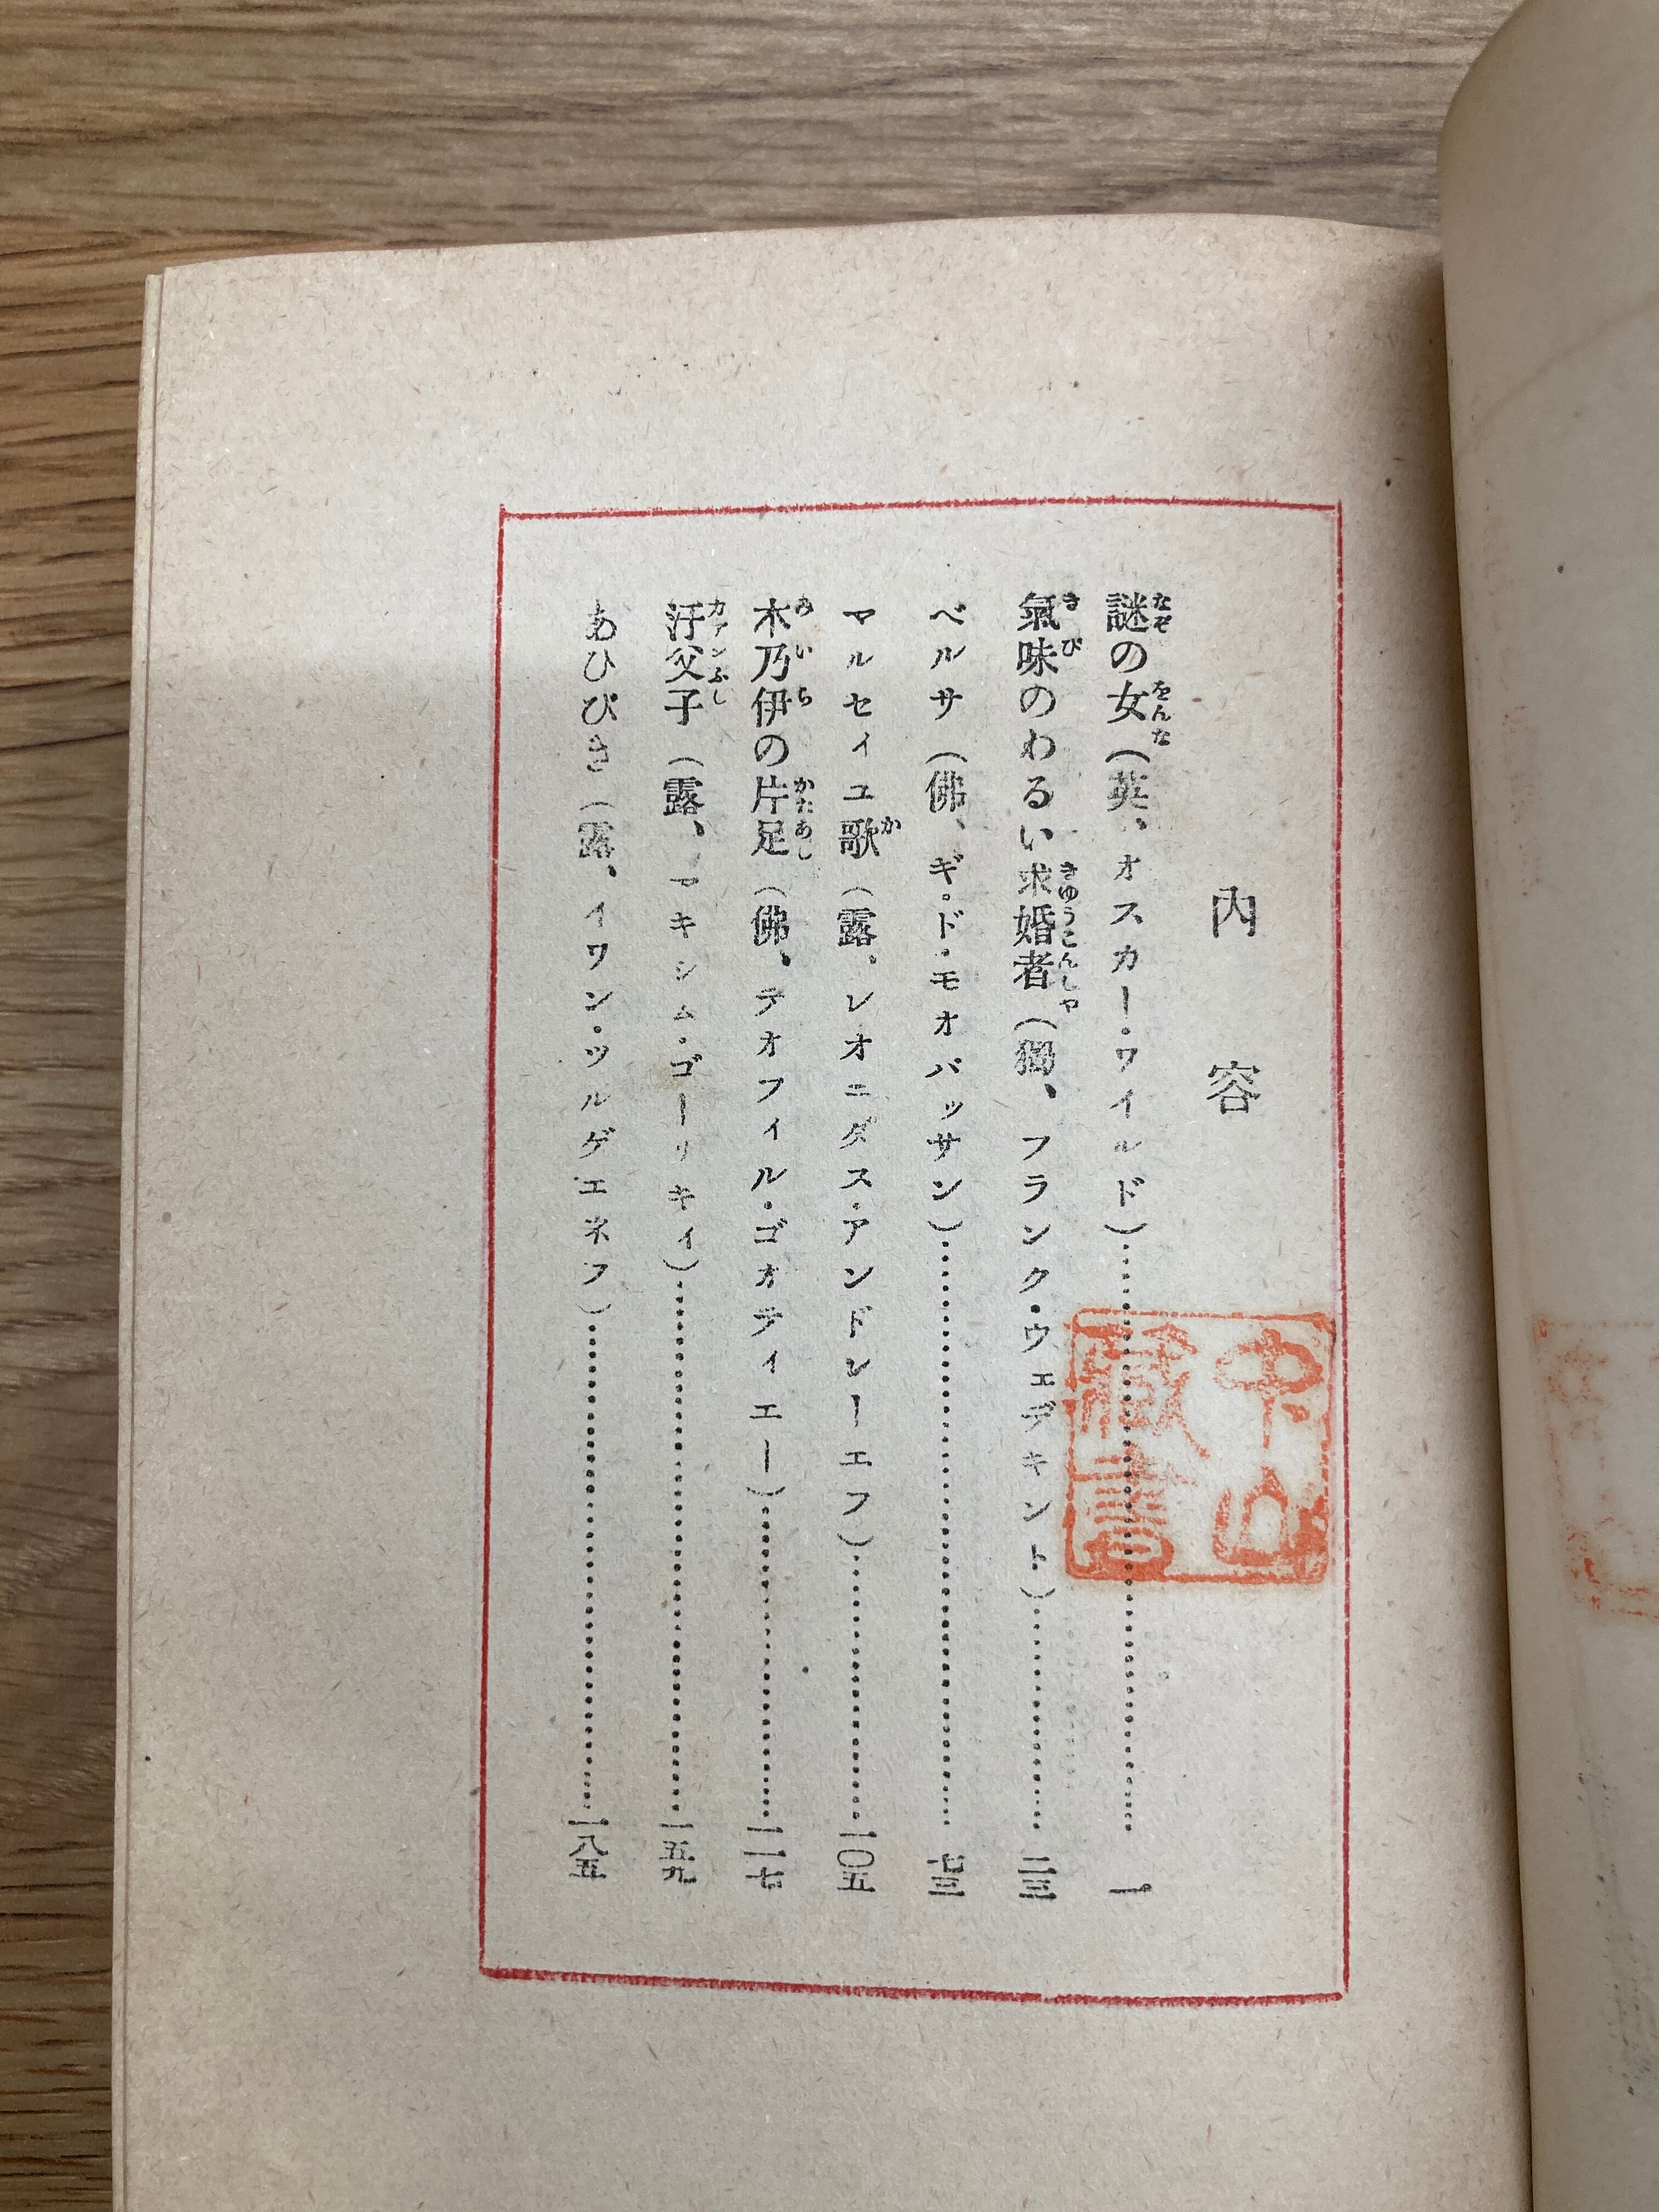 內容
謎の女（英、オスカー・ワイルド）……一
氣味のわるい求婚者（獨、フランク・ウェデキント）……二三
ベルサ（佛、ギ。ド・モオバッサン）……七三
マルセイユ歌（露、レオニダス・アンドレーエフ）……一〇五
木乃伊の片足（佛、テオフィル・ゴオティエー）……一一七
汗父子（露、マキシム・ゴーリキイ）……一五九
あひびき（露、イワン・ツルゲエネフ）……一八五
中山藏書